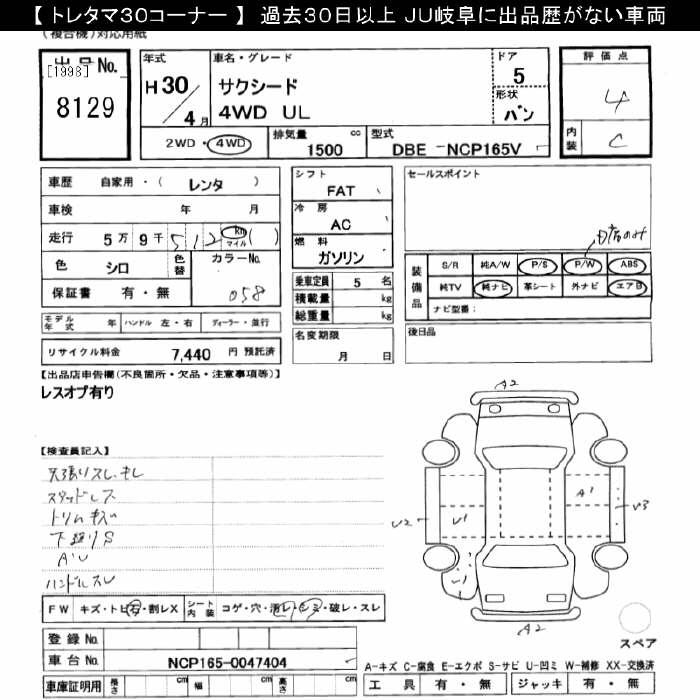 【 トレタマ30コーナー 】 過去30日以上 JU岐阜に出品歴がない車両
(複合機)対応用紙
出品No.
[1998]
8129
年式
H 30 / 4 月
車名・グレード
サクシード
4WD UL
ドア
5
形状
バン
2WD ・ 4WD
排気量 1500 cc
型式 DBE - NCP165V
評価点
4
内装
C
車歴 自家用・( レンタ )
車検 年 月
走行 5万 9千 512 km マイル ( )
色 シロ 色替 カラーNo. 058
保証書 有・無
モデル年式 年 ハンドル 左・右 ディーラー・並行
リサイクル料金 7,440 円 預託済
シフト
FAT
冷房
AC
燃料
ガソリン
乗車定員 5 名
積載量 kg
総重量 kg
名変期限
月 日
セールスポイント
装備品
S/R 純A/W P/S P/W ABS
純TV 純ナビ 革シート 外ナビ エアB
ナビ型番:
後日品
【出品店申告欄(不良箇所・欠品・注意事項等)】
レスオプ有り
【検査員記入】
スタッドレス
トリムキズ
下廻りS
A、U
ハンドルスレ
FW キズ・トビ石・割レX シート内装 コゲ・穴・汚レ・シミ・破レ・スレ
登録No.
車台No. NCP165-0047404
車庫証明用 長さ cm 幅 cm 高さ cm
A2
A1
U2
U1
U3
U1
A2
スペア
A-キズ C-腐食 E-エクボ S-サビ U-凹ミ W-補修 XX-交換済
工具 有・無 ジャッキ 有・無